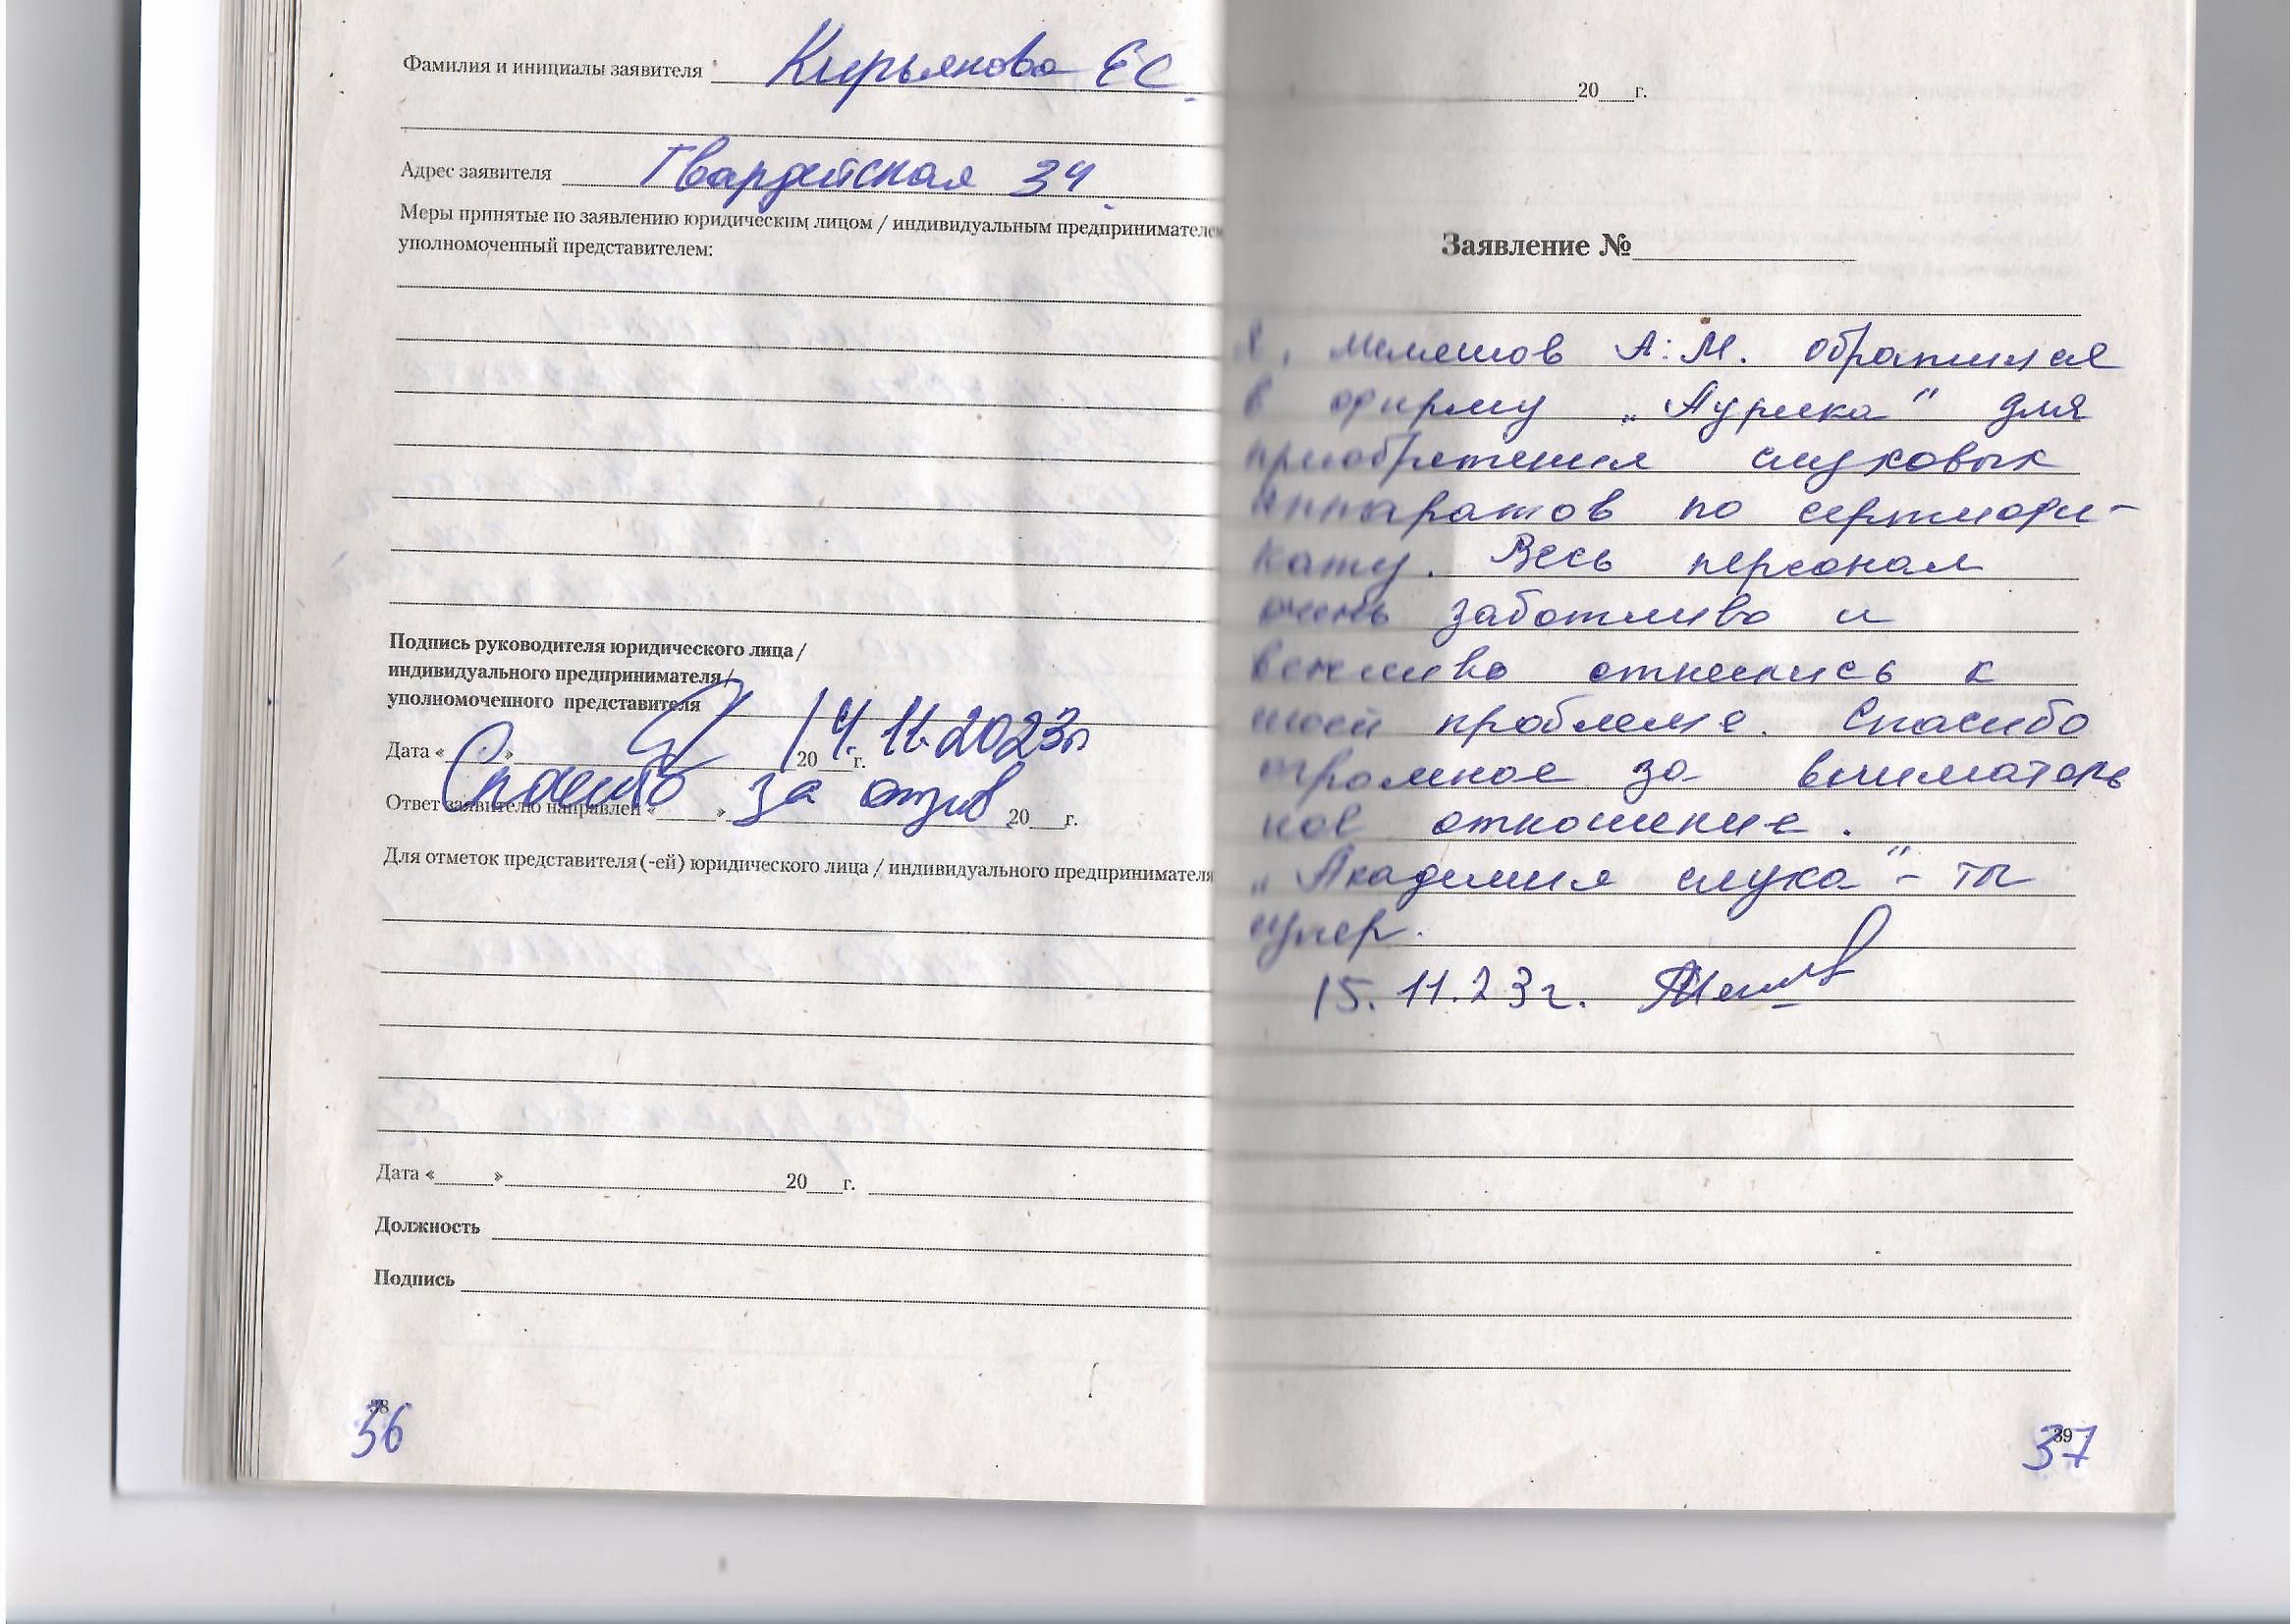 Фамилия и инициалы заявителя Кирьянова ЕС.
Адрес заявителя Гвардейская 34.
Меры принятые по заявлению юридическим лицом / индивидуальным предпринимателем
уполномоченный представителем:
Подпись руководителя юридического лица /
индивидуального предпринимателя /
уполномоченного представителя
Дата « » 20 г. 14.11.2023г
Спасибо за отзыв
Ответ заявителю направлен « » 20 г.
Для отметок представителя (-ей) юридического лица / индивидуального предпринимателя
Дата « » 20 г.
Должность
Подпись
38
36
20 г.
Заявление №
Я, Мелешов А.М. обратился
в фирму „Аурика" для
приобретения слуховых
аппаратов по сертифи-
кату. Весь персонал
очень заботливо и
вежливо отнеслись к
моей проблеме. Спасибо
огромное за вниматель
ное отношение.
„Академия слуха" - ты
супер.
15.11.23г.
39
37